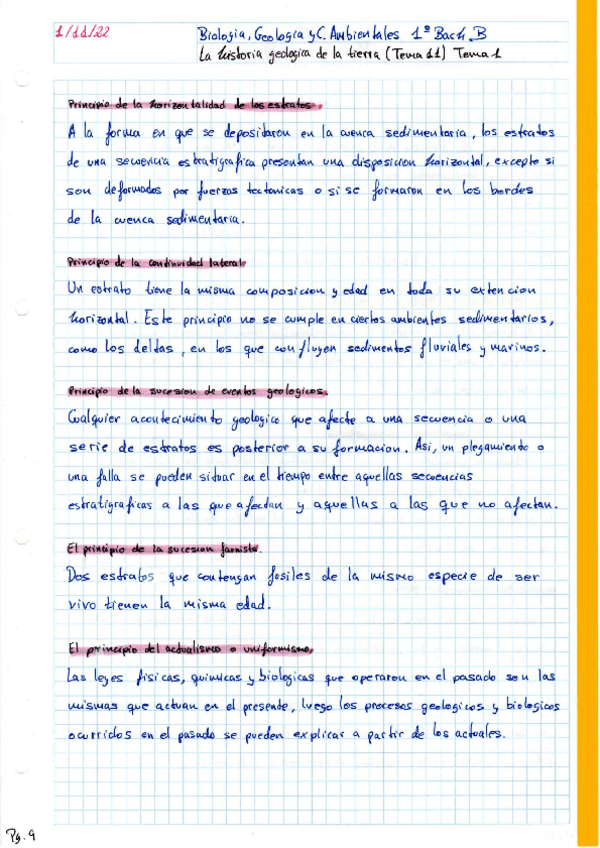 1/11/22
Biologia, Geologia y C. Ambientales 1º Bach. B
La historia geologica de la tierra (Tema 11) Tema 1
Principio de la horizontalidad de los estratos.
A la forma en que se depositaron en la cuenca sedimentaria, los estratos
de una secuencia estratigrafica presentan una disposicion horizontal, excepto si
son deformados por fuerzas tectonicas o si se formaron en los bordes
de la cuenca sedimentaria.
Principio de la continuidad lateral
Un estrato tiene la misma composicion y edad en toda su extencion
horizontal. Este principio no se cumple en ciertos ambientes sedimentarios,
como los deltas, en los que confluyen sedimentos fluviales y marinos.
Principio de la sucesion de eventos geologicos.
Cualquier acontecimiento geologico que afecte a una secuencia o una
serie de estratos es posterior a su formacion. Asi, un plegamiento o
una falla se pueden situar en el tiempo entre aquellas secuencias
estratigraficas a las que afectan y aquellas a las que no afectan.
El principio de la sucesion faunista.
Dos estratos que contengan fosiles de la misma especie de ser
vivo tienen la misma edad.
El principio del actualismo o uniformismo.
Las leyes fisicas, quimicas y biologicas que operaron en el pasado son las
mismas que actuan en el presente, luego los procesos geologicos y biologicos
ocurridos en el pasado se pueden explicar a partir de los actuales.
Pg. 9